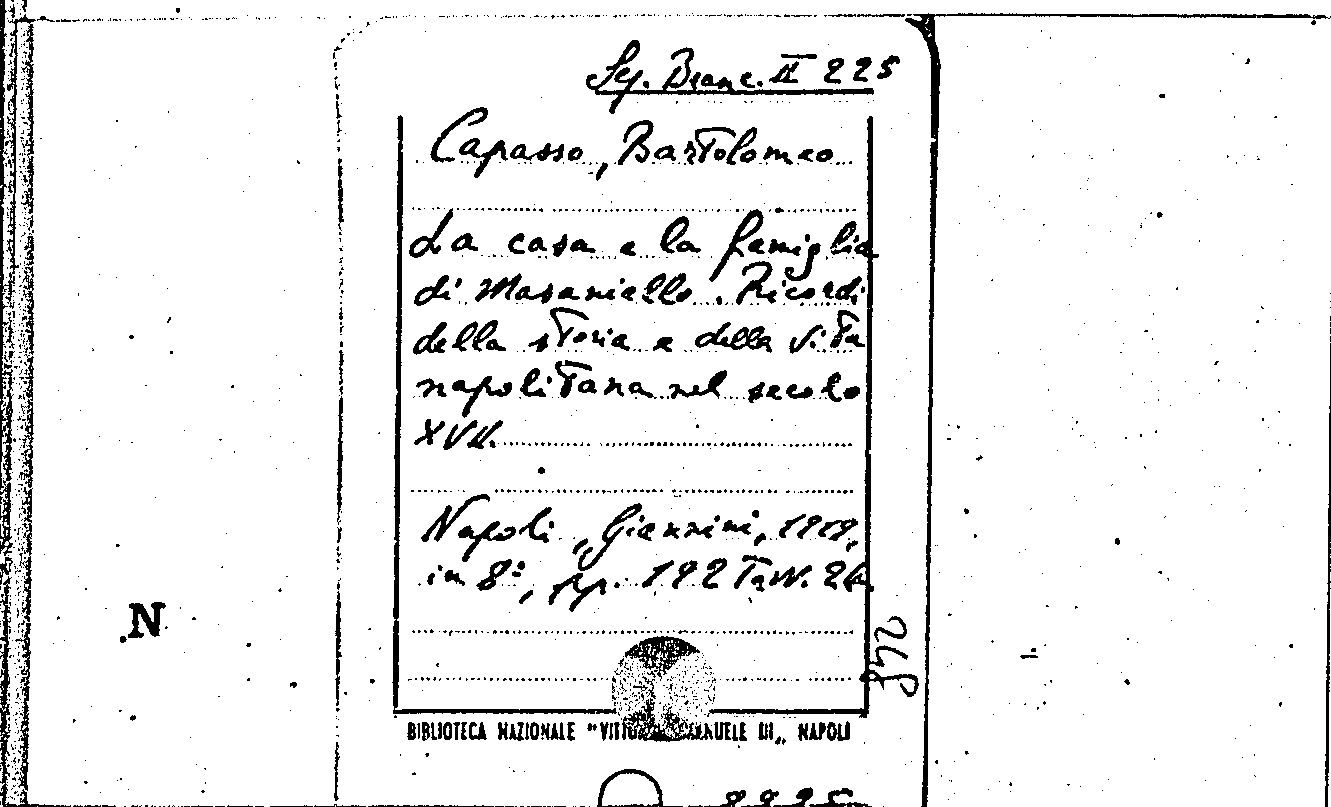 Sez. Branc. II 225
Capasso, Bartolomeo
La casa e la famiglia
di Masaniello. Ricordi
della storia e della vita
napolitana nel secolo
XVII.
Napoli, Giannini, 1919,
in 8º, pp. 192 Tavv.
N
BIBLIOTECA NAZIONALE "VITTORIO EMANUELE III„ NAPOLI